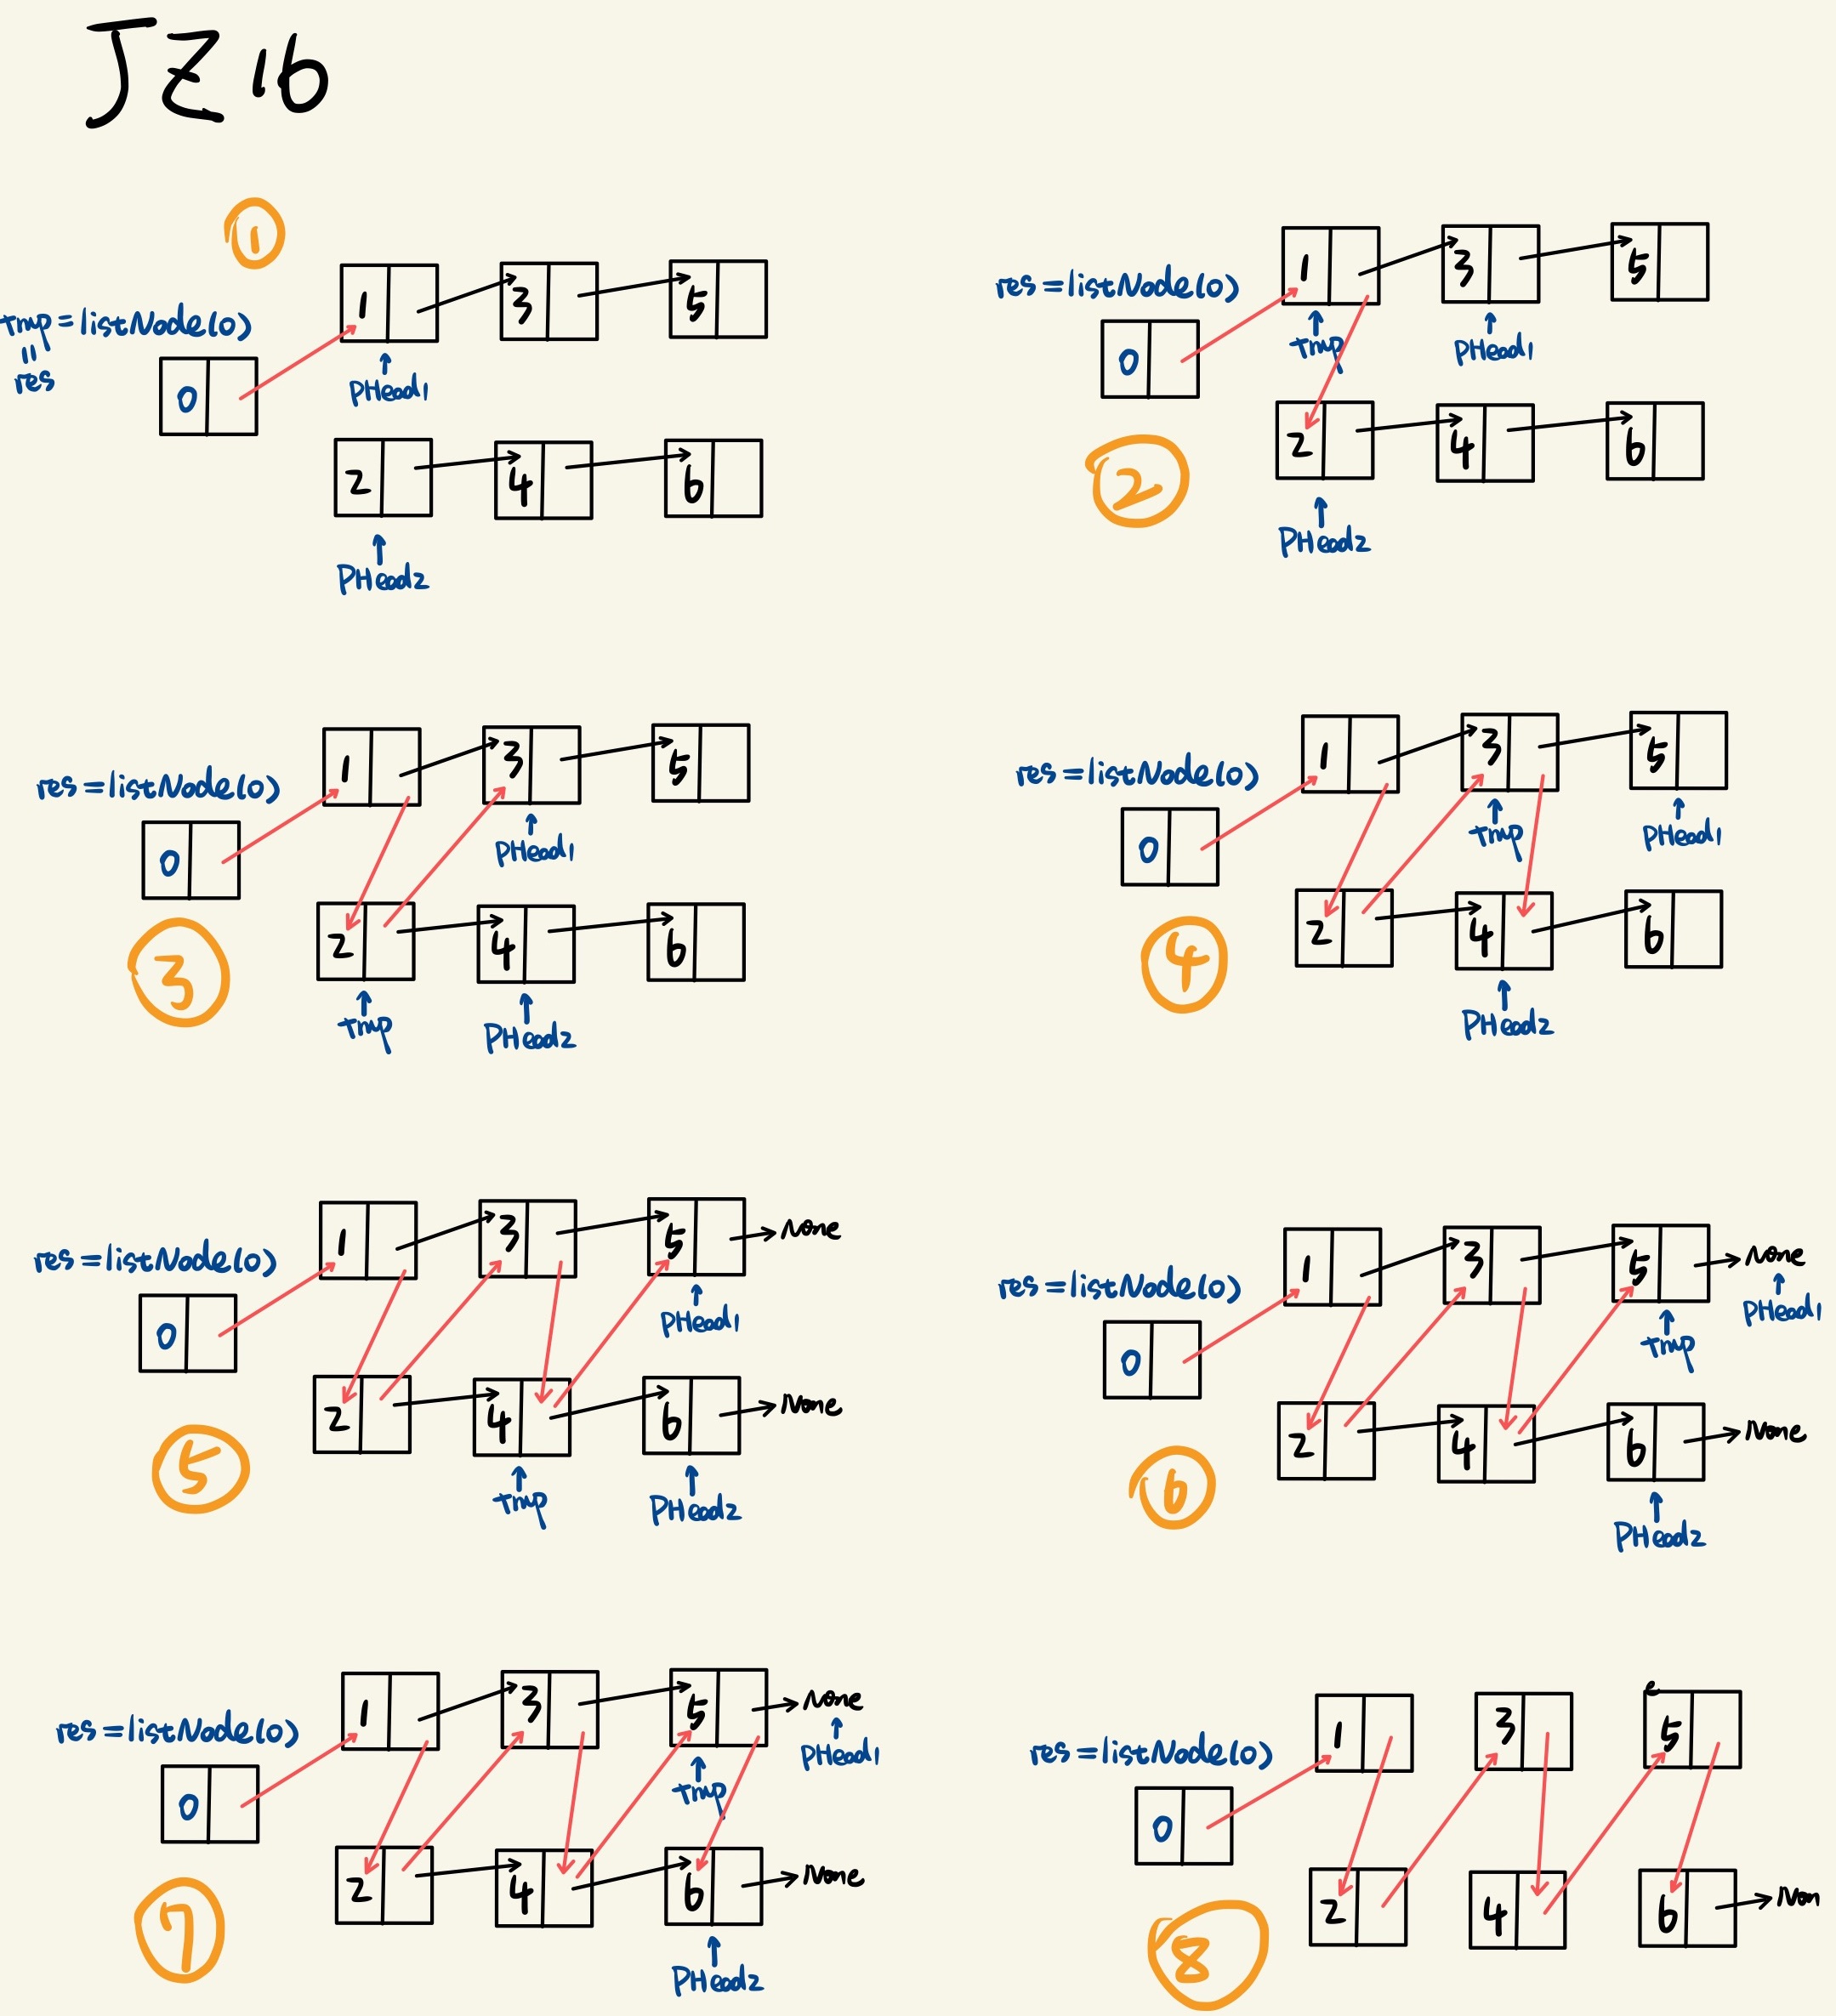 JZ 16
①
tmp = listNode(0)
=
res
0
1 3 5
PHead1
2 4 6
PHead2
②
res = listNode(0)
0
1 3 5
tmp PHead1
2 4 6
PHead2
③
res = listNode(0)
0
1 3 5
PHead1
2 4 6
tmp PHead2
④
res = listNode(0)
0
1 3 5
tmp PHead1
2 4 6
PHead2
⑤
res = listNode(0)
0
1 3 5 None
PHead1
2 4 6 None
tmp PHead2
⑥
res = listNode(0)
0
1 3 5 None
tmp PHead1
2 4 6 None
PHead2
⑦
res = listNode(0)
0
1 3 5 None
tmp PHead1
2 4 6 None
PHead2
⑧
res = listNode(0)
0
1 3 5
2 4 6 Non